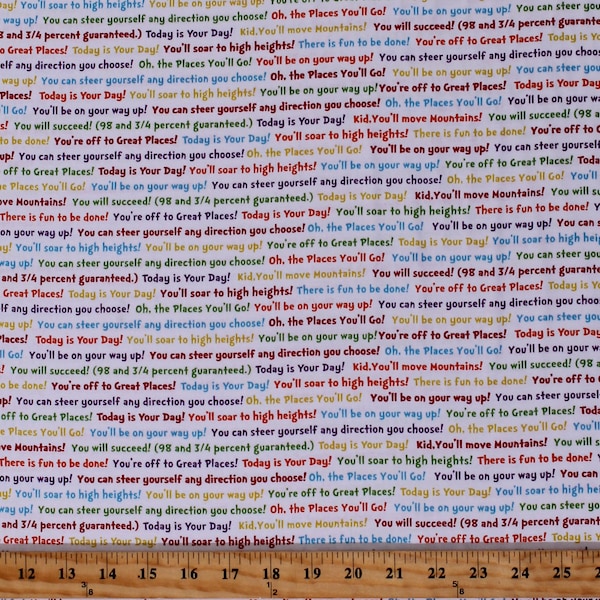 way up! You can steer yourself any direction you choose! Oh, the Places You'll Go! You'll be on your way up! You can steer
8 and 3/4 percent guaranteed.) Today is Your Day! Kid, You'll move Mountains! You will succeed! (98 and 3/4 percent guarante
reat Places! Today is Your Day! You'll soar to high heights! There is fun to be done! You're off to Great Places! Today is Y
elf any direction you choose! Oh, the Places You'll Go! You'll be on your way up! You can steer yourself any direction you choos
way up! You can steer yourself any direction you choose! Oh, the Places You'll Go! You'll be on your way up! You can steer
Places! Today is Your Day! You'll soar to high heights! You'll be on your way up! You're off to Great Places! Today is Your Day
ll Go! You'll be on your way up! You can steer yourself any direction you choose! Oh, the Places You'll Go! You'll be on your
s! You will succeed! (98 and 3/4 percent guaranteed.) Today is Your Day! Kid, You'll move Mountains! You will succeed! (98 a
o be done! You're off to Great Places! Today is Your Day! You'll soar to high heights! There is fun to be done! You're off to G
up! You can steer yourself any direction you choose! Oh, the Places You'll Go! You'll be on your way up! You can steer yourself
off to Great Places! Today is Your Day! You'll soar to high heights! You'll be on your way up! You're off to Great Places! Toda
he Places You'll Go! You'll be on your way up! You can steer yourself any direction you choose! Oh, the Places You'll Go! You'll
ve Mountains! You will succeed! (98 and 3/4 percent guaranteed.) Today is Your Day! Kid, You'll move Mountains! You will su
There is fun to be done! You're off to Great Places! Today is Your Day! You'll soar to high heights! There is fun to be done! Yo
on your way up! You can steer yourself any direction you choose! Oh, the Places You'll Go! You'll be on your way up! You can s
ay! You'll soar to high heights! You'll be on your way up! You're off to Great Places! Today is Your Day! You'll soar to high he
ur way up! You can steer yourself any direction you choose! Oh, the Places You'll Go! You'll be on your way up! You can steer
and 3/4 percent guaranteed.) Today is Your Day! Kid, You'll move Mountains! You will succeed! (98 and 3/4 percent guarante
reat Places! Today is Your Day! You'll soar to high heights! There is fun to be done! You're off to Great Places! Today is Y
elf any direction you choose! Oh, the Places You'll Go! You'll be on your way up! You can steer yourself any direction you choos
way up! You can steer yourself any direction you choose! Oh, the Places You'll Go! You'll be on your way up! You can steer
Places! Today is Your Day! You'll soar to high heights! You'll be on your way up! You're off to Great Places! Today is Your Day
ll Go! You'll be on your way up! You can steer yourself any direction you choose! Oh, the Places You'll Go! You'll be on your
s! You will succeed! (98 and 3/4 percent guaranteed.) Today is Your Day! Kid, You'll move Mountains! You will succeed! (98 a
o be done! You're off to Great Places! Today is Your Day! You'll soar to high heights! There is fun to be done! You're off to G
up! You can steer yourself any direction you choose! Oh, the Places You'll Go! You'll be on your way up! You can steer yourself
off to Great Places! Today is Your Day! You'll soar to high heights! You'll be on your way up! You're off to Great Places! Toda
he Places You'll Go! You'll be on your way up! You can steer yourself any direction you choose! Oh, the Places You'll Go! You'll
ve Mountains! You will succeed! (98 and 3/4 percent guaranteed.) Today is Your Day! Kid, You'll move Mountains! You will s
There is fun to be done! You're off to Great Places! Today is Your Day! You'll soar to high heights! There is fun to be done! Yo
on your way up! You can steer yourself any direction you choose! Oh, the Places You'll Go! You'll be on your way up! You can
ay! You'll soar to high heights! You'll be on your way up! You're off to Great Places! Today is Your Day! You'll soar to high hei
ur way up! You can steer yourself any direction you choose! Oh, the Places You'll Go! You'll be on your way up! You can steer
and 3/4 percent guaranteed.) Today is Your Day! Kid, You'll move Mountains! You will succeed! (98 and 3/4 percent guarante
reat Places! Today is Your Day! You'll soar to high heights! There is fun to be done! You're off to Great Places! Today is Y
12 13 14 15 16 17 18 19 20 21 22 23 24 25 26
3/8 1/2 5/8